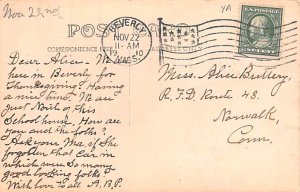 Nov 22nd
YA
POST CARD
CORRESPONDENCE HERE
BEVERLY
NOV 22
11-AM
MASS.
U.S. POSTAGE
Dear Alice - We are
here in Beverly for
Thanksgiving. Having
a nice time. We are
just North of this
School house. How are
you and the folks?
Ask your Ma. if she
forgotten that car in
which were so many
good looking folks
With love to all A.B.P.
Miss. Alice Buttery,
R.F.D. Route 43.
Norwalk,
Conn.